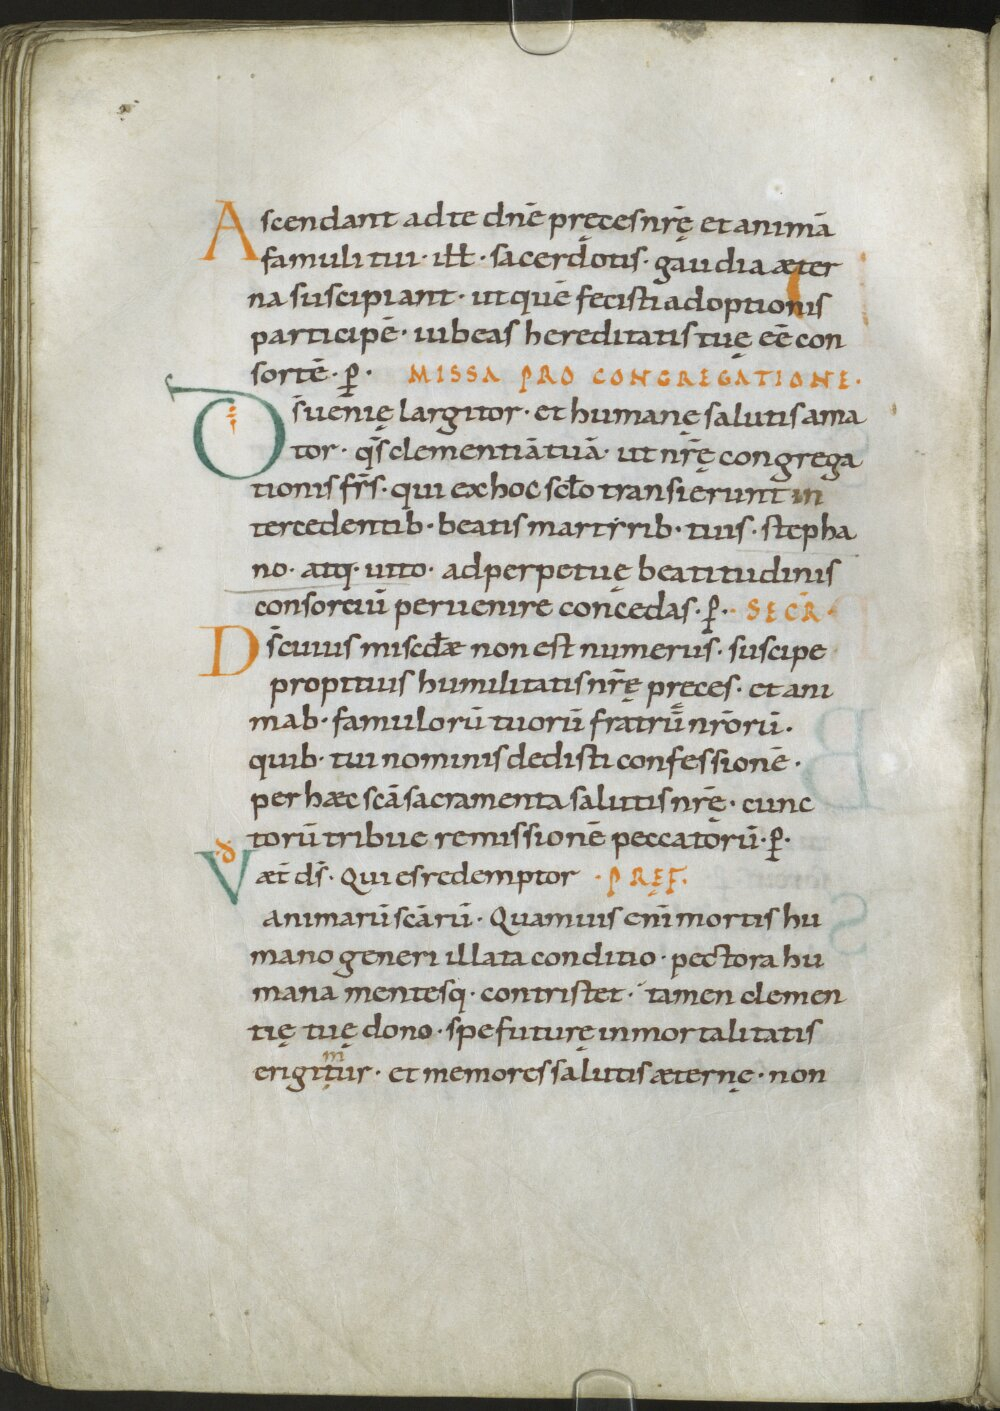 Ascendant ad te dnē pręces nr̄ę et animā
famuli tui · ill̄ · sacerdotis · gaudia æter
na suscipiant · ut quē fecisti adoptionis
participē · iubeas hereditatis tuę eē con
sortē · p̱ · MISSA PRO CONGREGATIONE ·
D̄s uenię largitor · et humanę salutis ama
tor · qs̄ clementiā tuā · ut nr̄ę congrega
tionis fr̄s · qui ex hoc sc̄lo transierunt in
tercedentib · beatis martyrib · tuis · stepha
no · atq · uito · ad perpetuę beatitudinis
consorciū peruenire concedas · p̱ · SECR̄ ·
D̄s cuius misc̄dæ non est numerus · suscipe
propitius humilitatis nr̄ę pręces · et ani
mab · famulorū tuorū fratrū nr̄orū ·
quib · tui nominis dedisti confessionē ·
per hæc scā sacramenta salutis nr̄ę · cunc
torū tribue remissionē peccatorū · p̱ ·
VD æt̄ ds̄ · Qui es redemptor · PRĘF ·
animarū scārū · Quamuis eni̅ mortis hu
mano generi illata conditio · pectora hu
mana mentesq · contristet · tamen clemen
tię tuę dono · spe futurę inmortalitatis
erigimur · et memores salutis æternę · non